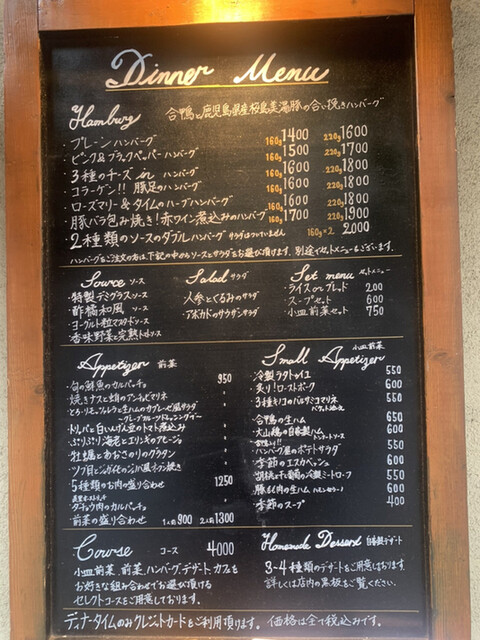 Dinner Menu
Hamburg 合鴨と鹿児島県産桜島美湯豚の合い挽きハンバーグ
・プレーンハンバーグ 160g 1400 220g 1600
・ピンク&ブラックペッパーハンバーグ 160g 1500 220g 1700
・3種のチーズinハンバーグ 160g 1600 220g 1800
・コラーゲン!! 豚足のハンバーグ 160g 1600 220g 1800
・ローズマリー&タイムのハーブハンバーグ 160g 1600 220g 1800
・豚バラ包み焼き!赤ワイン煮込みのハンバーグ 160g 1700 220g 1900
・2種類のソースのダブルハンバーグ サラダはついていません 160g×2 2000
ハンバーグをご注文の方は下記の中からソースとサラダをお選び頂けます。別途でセットメニューもございます。
Source ソース
・特製デミグラスソース
・酢橘和風 ソース
・ヨーグルト粒マスタードソース
・香味野菜と完熟トマトソース
Salad サラダ
・人参とくるみのサラダ
・アボカドのサウザンサラダ
Set menu セットメニュー
・ライス or ブレッド 200
・スープセット 600
・小皿前菜セット 750
Appetizer 前菜
・旬の鮮魚のカルパッチョ 950
・焼きナスと蛸のアンチョビマリネ
・とろ〜りモッツァレラと生ハムのカプレーゼ風サラダ
・トリッパと白いんげん豆のトマト煮込み
・ぷりぷり海老とエリンギのアヒージョ
・牡蠣とあおさのりのグラタン
・5種類のお肉の盛り合わせ 1250
・ダチョウ肉のカルパッチョ
・前菜の盛り合わせ 1人前 900 2人前 1300
Small Appetizer 小皿前菜
・冷製ラタトゥイユ 550
・炙り!ローストポーク 600
・3種キノコのバルサミコマリネ 550
バゲット添え
・合鴨の生ハム 650
・大山鶏の自家製ハム 600
・ハンバーグ屋のポテトサラダ 550
・季節のエスカベッシュ 600
・胡桃と干し葡萄の冷製ミートローフ 550
・豚もも肉の生ハム 600
・季節のスープ 400
Course コース 4000
小皿前菜、前菜、ハンバーグ、デザート、カフェを
お好きな組み合わせでお選び頂ける
セレクトコースをご用意しております。
Homemade Dessert 自家製デザート
3〜4種類のデザートをご用意しております
詳しくは店内の黒板をご覧ください。
ディナータイムのみクレジットカードをご利用頂けます。価格は全て税込みです。